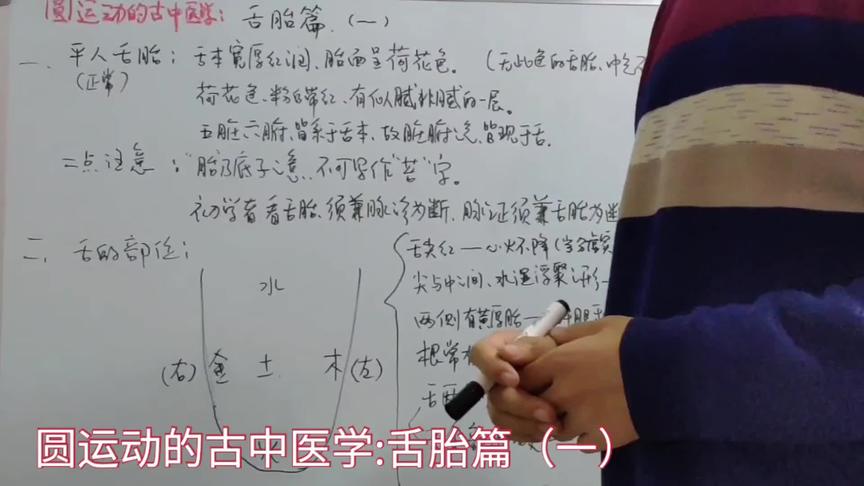 圆运动的古中医学：舌胎篇（一）
一、平人舌胎：舌本宽厚红润、胎面呈荷花色。（无此色的舌胎、中气不
（正常）
荷花色、粉白带红、有似腻非腻的一层。
五脏六腑、皆系于舌本、故脏腑 皆现于舌。
二点注意："胎"乃底子之意、不可写作"苔"字。
初学者看舌胎、须兼脉诊为断、脉证须兼舌胎为断
二、舌的部位：
舌尖红——心火不降（当分虚实
水
尖与中之间、水湿浮聚之形一
两侧有横厚胎一 胆
根常
（右）金 土 木（左）
舌
圆运动的古中医学:舌胎篇（一）